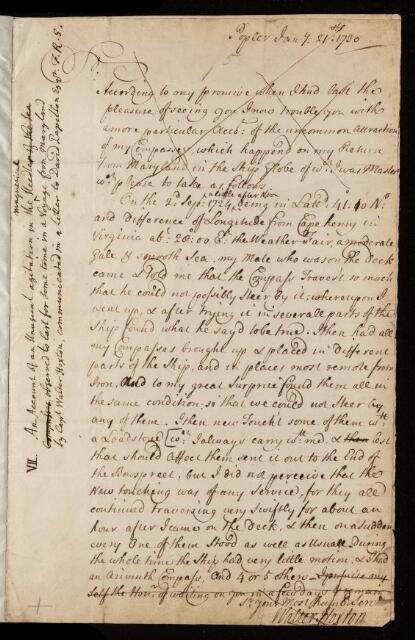 Popler Jan.y: 21.st 1730
Sr.
According to my promise when I had last the
pleasure of seeing you I now trouble you with
a more particular Acct: of the uncommon attraction
of my Compasses which happend on my Return
from Maryland in the Ship Globe of wch. I was Master
wch. please to take as follows
On the 2d. Sepr. 1724, a little after Noon being in Latd. 41:10 No:
and Difference of Longitude from Cape henny in
Virginia abt. 20:00 Et. the Weather Fair, a moderate
Gale & smooth Sea, my Mate who was on the Deck
came & told me that the Compass Travest so much
that he could not possibly Steer by it, whereupon I
went up, & after trying it in severall parts of the
Ship found what he sayd to be true. I then had all
my Compasses brought up & placed in Different
parts of the Ship, and in places most remote from
Iron, And to my great Surprise found them all in
the same condition, so that we could not Steer by
any of them. I then new Toucht some of them wth.
a Loadstone (wch. I always carry wth: me, & then lest
that should affect them sent it out to the End of
the Bowspreet, but I did not perceive that the
New touching was of any Service, for they all
continued traversing very swiftly for about an
hour after I came on the Deck, & then on a sudden
every One of them Stood as well as Usuall. During
the whole time, the Ship had very little motion, & I had
an Azimuth Compass, And 4 or 5 others I promise my
self the Honr. of waiting on you in a few days & remain
Sr. your Most Humb. Servt.
Walter Hoxton
VII. An Account of an Unusual Agitation in the magnetical Needles of the Sea
Compasses, observed to last for some time in a Voyage from Maryland
by Capt. Walter Hoxton, communicated in a Letter to David Papillon Esqr. F.R.S.